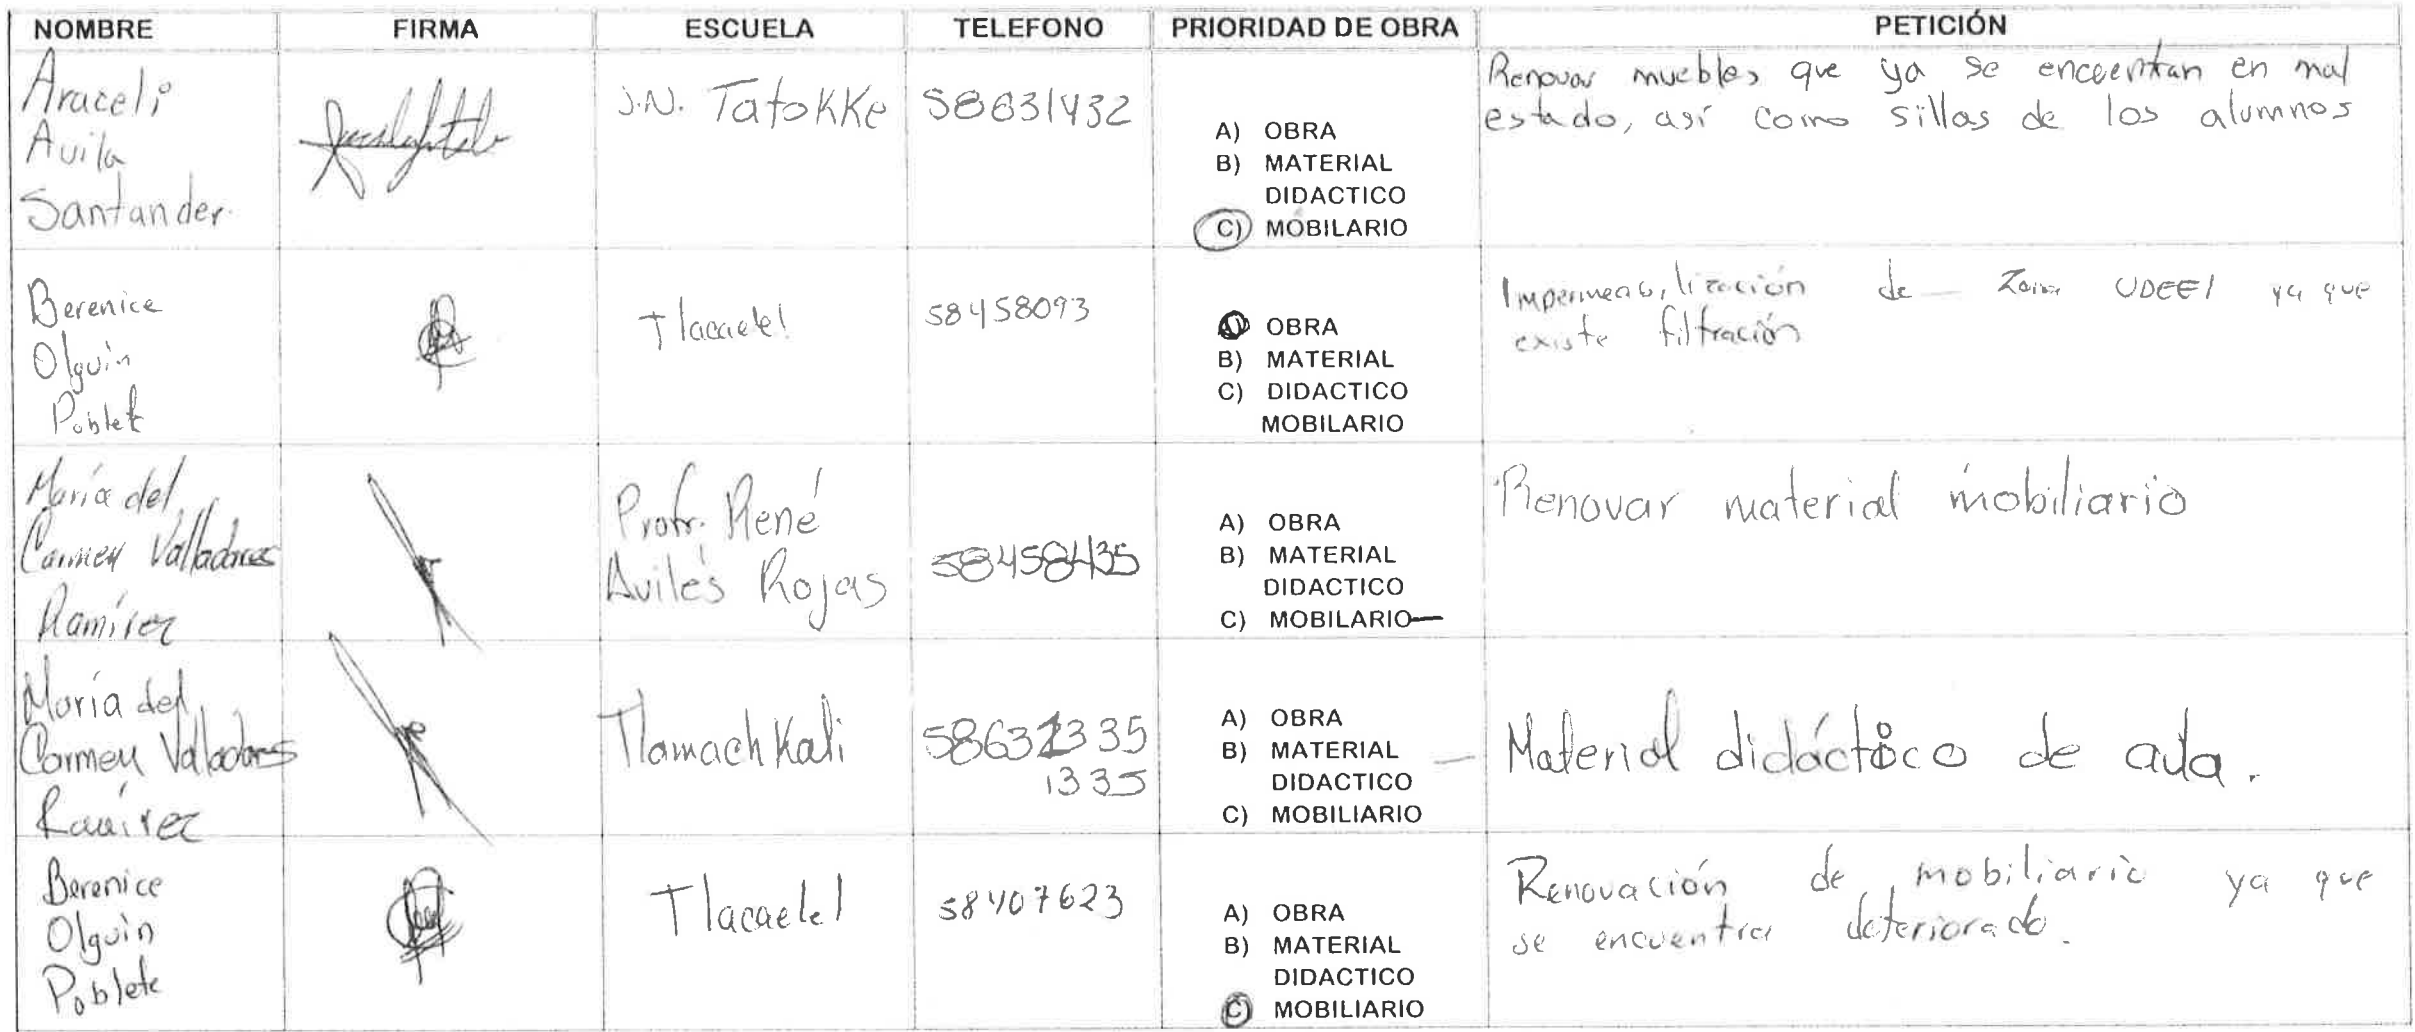 NOMBRE FIRMA ESCUELA TELEFONO PRIORIDAD DE OBRA PETICIÓN
Araceli
Avila
Santander
J.N. Tatokke
58631432
A) OBRA
B) MATERIAL
DIDACTICO
C) MOBILARIO
Renovar muebles que ya se encuentran en mal
estado, así como sillas de los alumnos
Berenice
Olguin
Poblete
Tlacaelel
58458093
A) OBRA
B) MATERIAL
C) DIDACTICO
MOBILARIO
Impermeabilización de Zona UDEEI ya que
existe filtración
María del
Carmen Valladares
Ramírez
Profr. René
Avilés Rojas
58458435
A) OBRA
B) MATERIAL
DIDACTICO
C) MOBILARIO
Renovar material mobiliario
María del
Carmen Valladares
Ramírez
Tlamachkali
58631335
1335
A) OBRA
B) MATERIAL
DIDACTICO
C) MOBILIARIO
Material didáctico de aula.
Berenice
Olguin
Poblete
Tlacaelel
58407623
A) OBRA
B) MATERIAL
DIDACTICO
C) MOBILIARIO
Renovación de mobiliario ya que
se encuentra deteriorado.